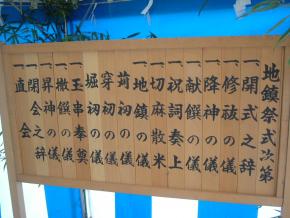 地鎮祭式次第
一、開式之辞
一、修祓の儀
一、降神の儀
一、献饌の儀
一、祝詞奏上
一、切麻散米
一、地鎮の儀
苅初の儀
穿初の儀
堀初の儀
一、玉串奉奠
一、撤饌の儀
一、昇神の儀
一、閉会之辞
一、直会